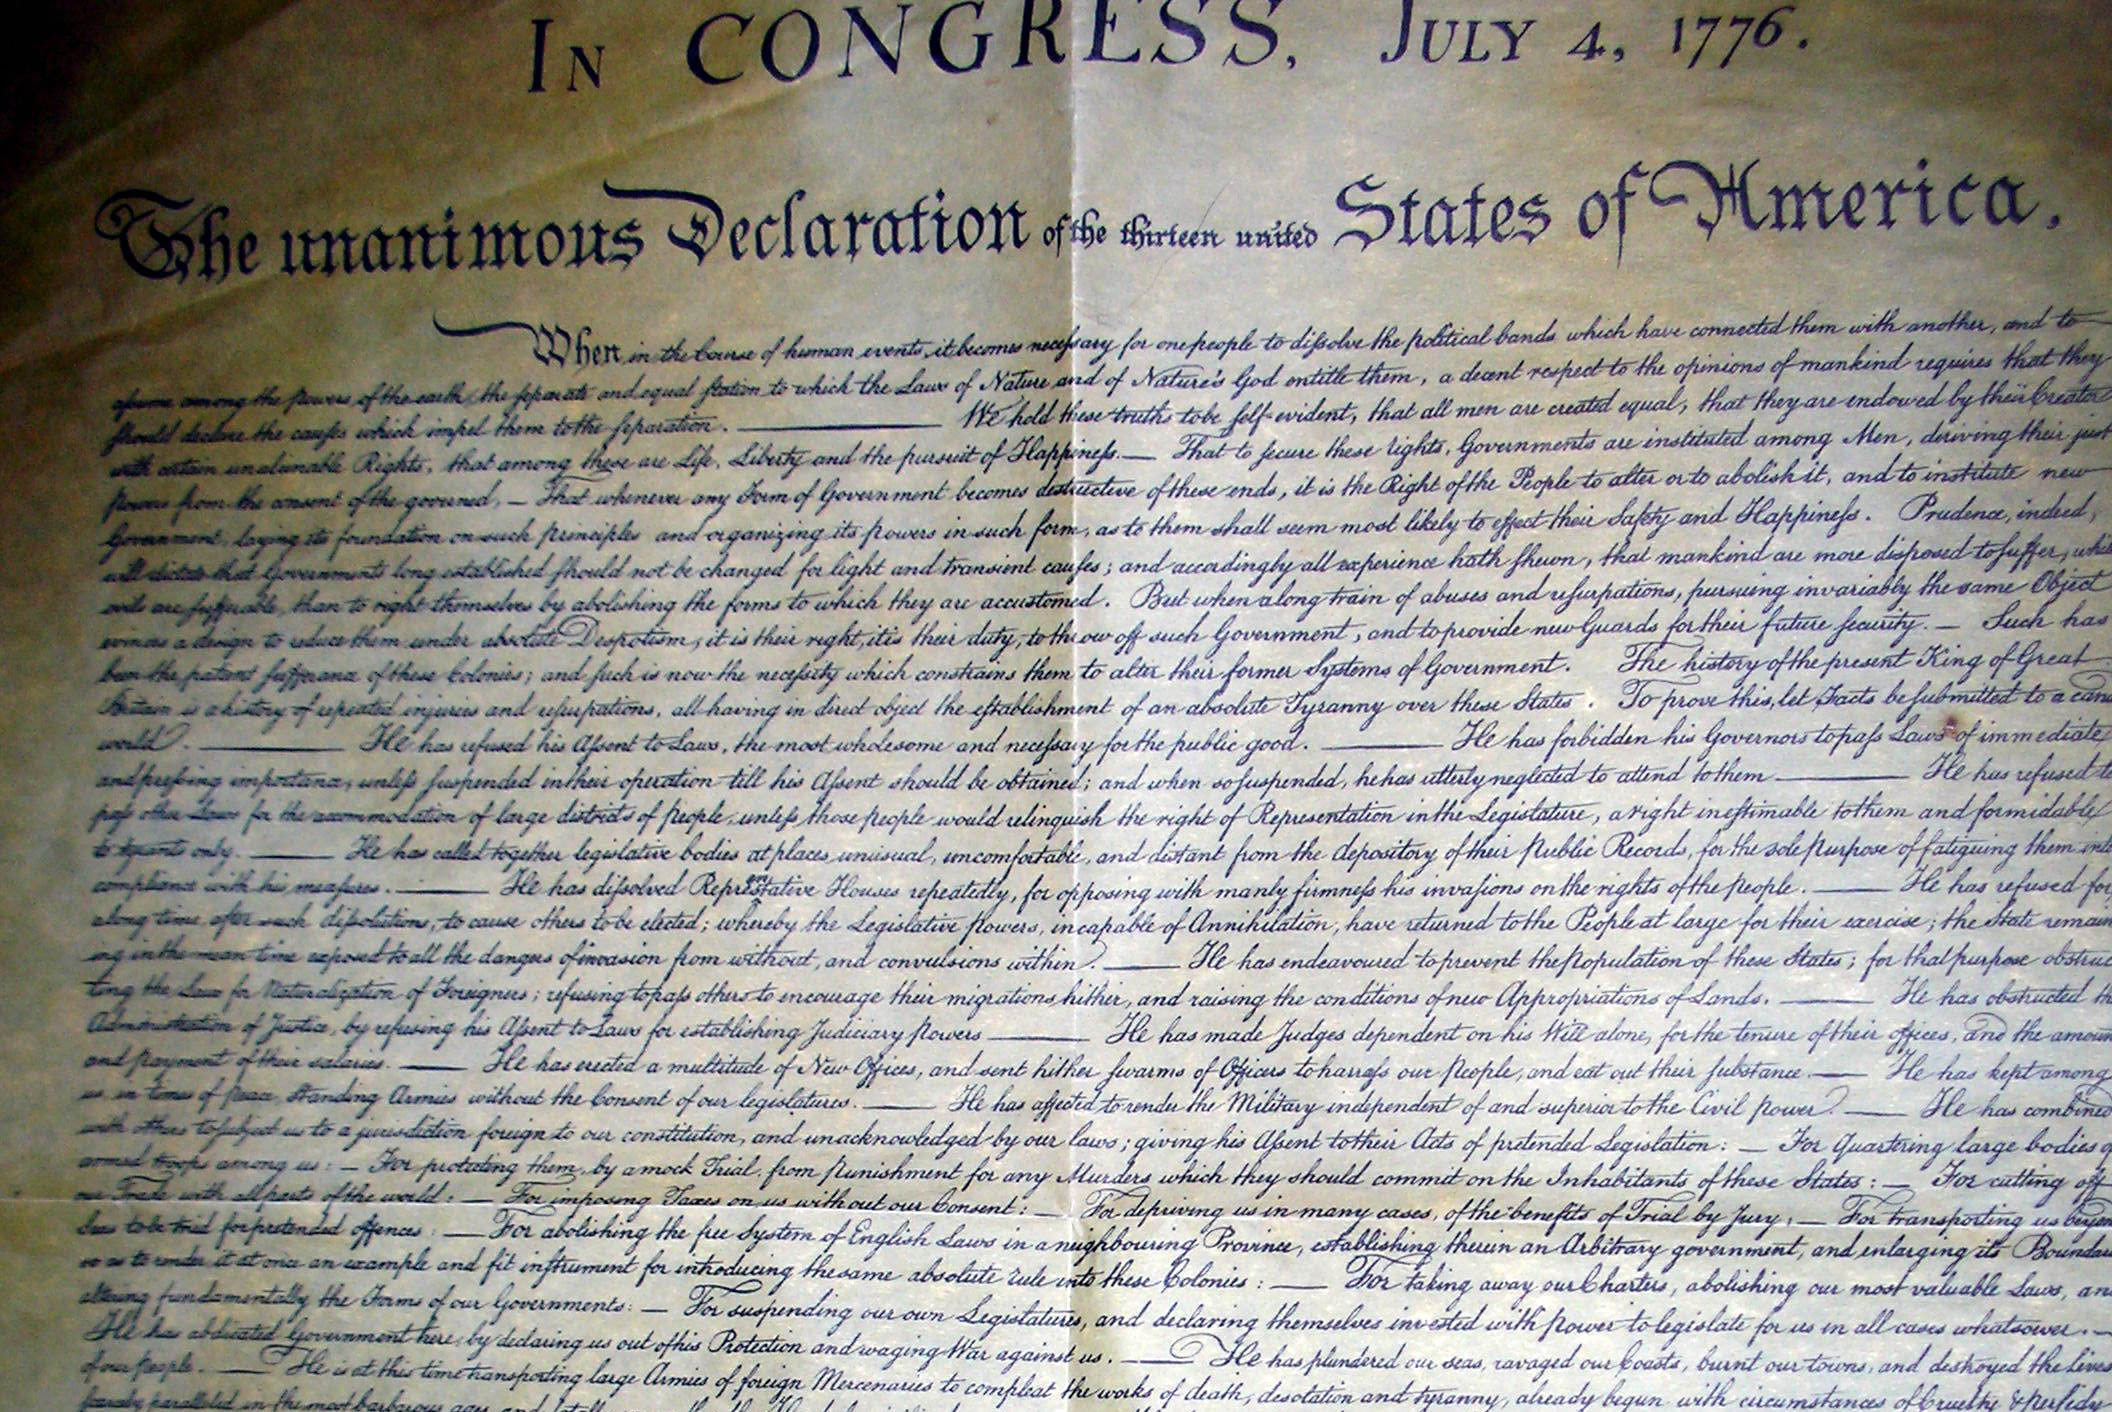 In CONGRESS, July 4, 1776.
The unanimous Declaration of the thirteen united States of America.
When in the Course of human events, it becomes necessary for one people to dissolve the political bands which have connected them with another, and to
assume among the powers of the earth, the separate and equal station to which the Laws of Nature and of Nature's God entitle them, a decent respect to the opinions of mankind requires that they
should declare the causes which impel them to the separation. — We hold these truths to be self-evident, that all men are created equal, that they are endowed by their Creator
with certain unalienable Rights, that among these are Life, Liberty and the pursuit of Happiness. — That to secure these rights, Governments are instituted among Men, deriving their just
powers from the consent of the governed, — That whenever any Form of Government becomes destructive of these ends, it is the Right of the People to alter or to abolish it, and to institute new
Government, laying its foundation on such principles and organizing its powers in such form, as to them shall seem most likely to effect their Safety and Happiness. Prudence, indeed,
will dictate that Governments long established should not be changed for light and transient causes; and accordingly all experience hath shewn, that mankind are more disposed to suffer, while
evils are sufferable, than to right themselves by abolishing the forms to which they are accustomed. But when a long train of abuses and usurpations, pursuing invariably the same Object
evinces a design to reduce them under absolute Despotism, it is their right, it is their duty, to throw off such Government, and to provide new Guards for their future security. — Such has
been the patient sufferance of these Colonies; and such is now the necessity which constrains them to alter their former Systems of Government. The history of the present King of Great
Britain is a history of repeated injuries and usurpations, all having in direct object the establishment of an absolute Tyranny over these States. To prove this, let Facts be submitted to a
world. — He has refused his Assent to Laws, the most wholesome and necessary for the public good. — He has forbidden his Governors to pass Laws of immediate
and pressing importance, unless suspended in their operation till his Assent should be obtained; and when so suspended, he has utterly neglected to attend to them — He has refused to
pass other Laws for the accommodation of large districts of people, unless those people would relinquish the right of Representation in the Legislature, a right inestimable to them and formidable
to tyrants only. — He has called together legislative bodies at places unusual, uncomfortable, and distant from the depository of their Public Records, for the sole purpose of fatiguing them into
compliance with his measures. — He has dissolved Representative Houses repeatedly, for opposing with manly firmness his invasions on the rights of the people. — He has refused for
a long time, after such dissolutions, to cause others to be elected; whereby the Legislative powers, incapable of Annihilation, have returned to the People at large for their exercise; the State remain
ing in the mean time exposed to all the dangers of invasion from without, and convulsions within. — He has endeavoured to prevent the population of these States; for that purpose obstruc
ting the Laws for Naturalization of Foreigners; refusing to pass others to encourage their migrations hither, and raising the conditions of new Appropriations of Lands. — He has obstructed the
Administration of Justice, by refusing his Assent to Laws for establishing Judiciary powers — He has made Judges dependent on his Will alone, for the tenure of their offices, and the amoun
and payment of their salaries. — He has erected a multitude of New Offices, and sent hither swarms of Officers to harrass our People, and eat out their substance. — He has kept among
us, in times of peace, Standing Armies without the Consent of our legislatures. — He has affected to render the Military independent of and superior to the Civil power. — He has combined
with others to subject us to a jurisdiction foreign to our constitution, and unacknowledged by our laws; giving his Assent to their Acts of pretended Legislation: — For Quartering large bodies o
armed troops among us: — For protecting them, by a mock Trial, from punishment for any Murders which they should commit on the Inhabitants of these States: — For cutting off
our Trade with all parts of the world: — For imposing Taxes on us without our Consent: — For depriving us in many cases, of the benefits of Trial by Jury: — For transporting us beyon
Seas to be tried for pretended offences: — For abolishing the free System of English Laws in a neighbouring Province, establishing therein an Arbitrary government, and enlarging its Boundar
so as to render it at once an example and fit instrument for introducing the same absolute rule into these Colonies: — For taking away our Charters, abolishing our most valuable Laws, an
altering fundamentally the Forms of our Governments: — For suspending our own Legislatures, and declaring themselves invested with power to legislate for us in all cases whatsoever. —
He has abdicated Government here, by declaring us out of his Protection and waging War against us. — He has plundered our seas, ravaged our Coasts, burnt our towns, and destroyed the Lives
of our people. — He is at this time transporting large Armies of foreign Mercenaries to compleat the works of death, desolation and tyranny, already begun with circumstances of Cruelty & perfidy
scarcely paralleled in the most barbarous ages, and